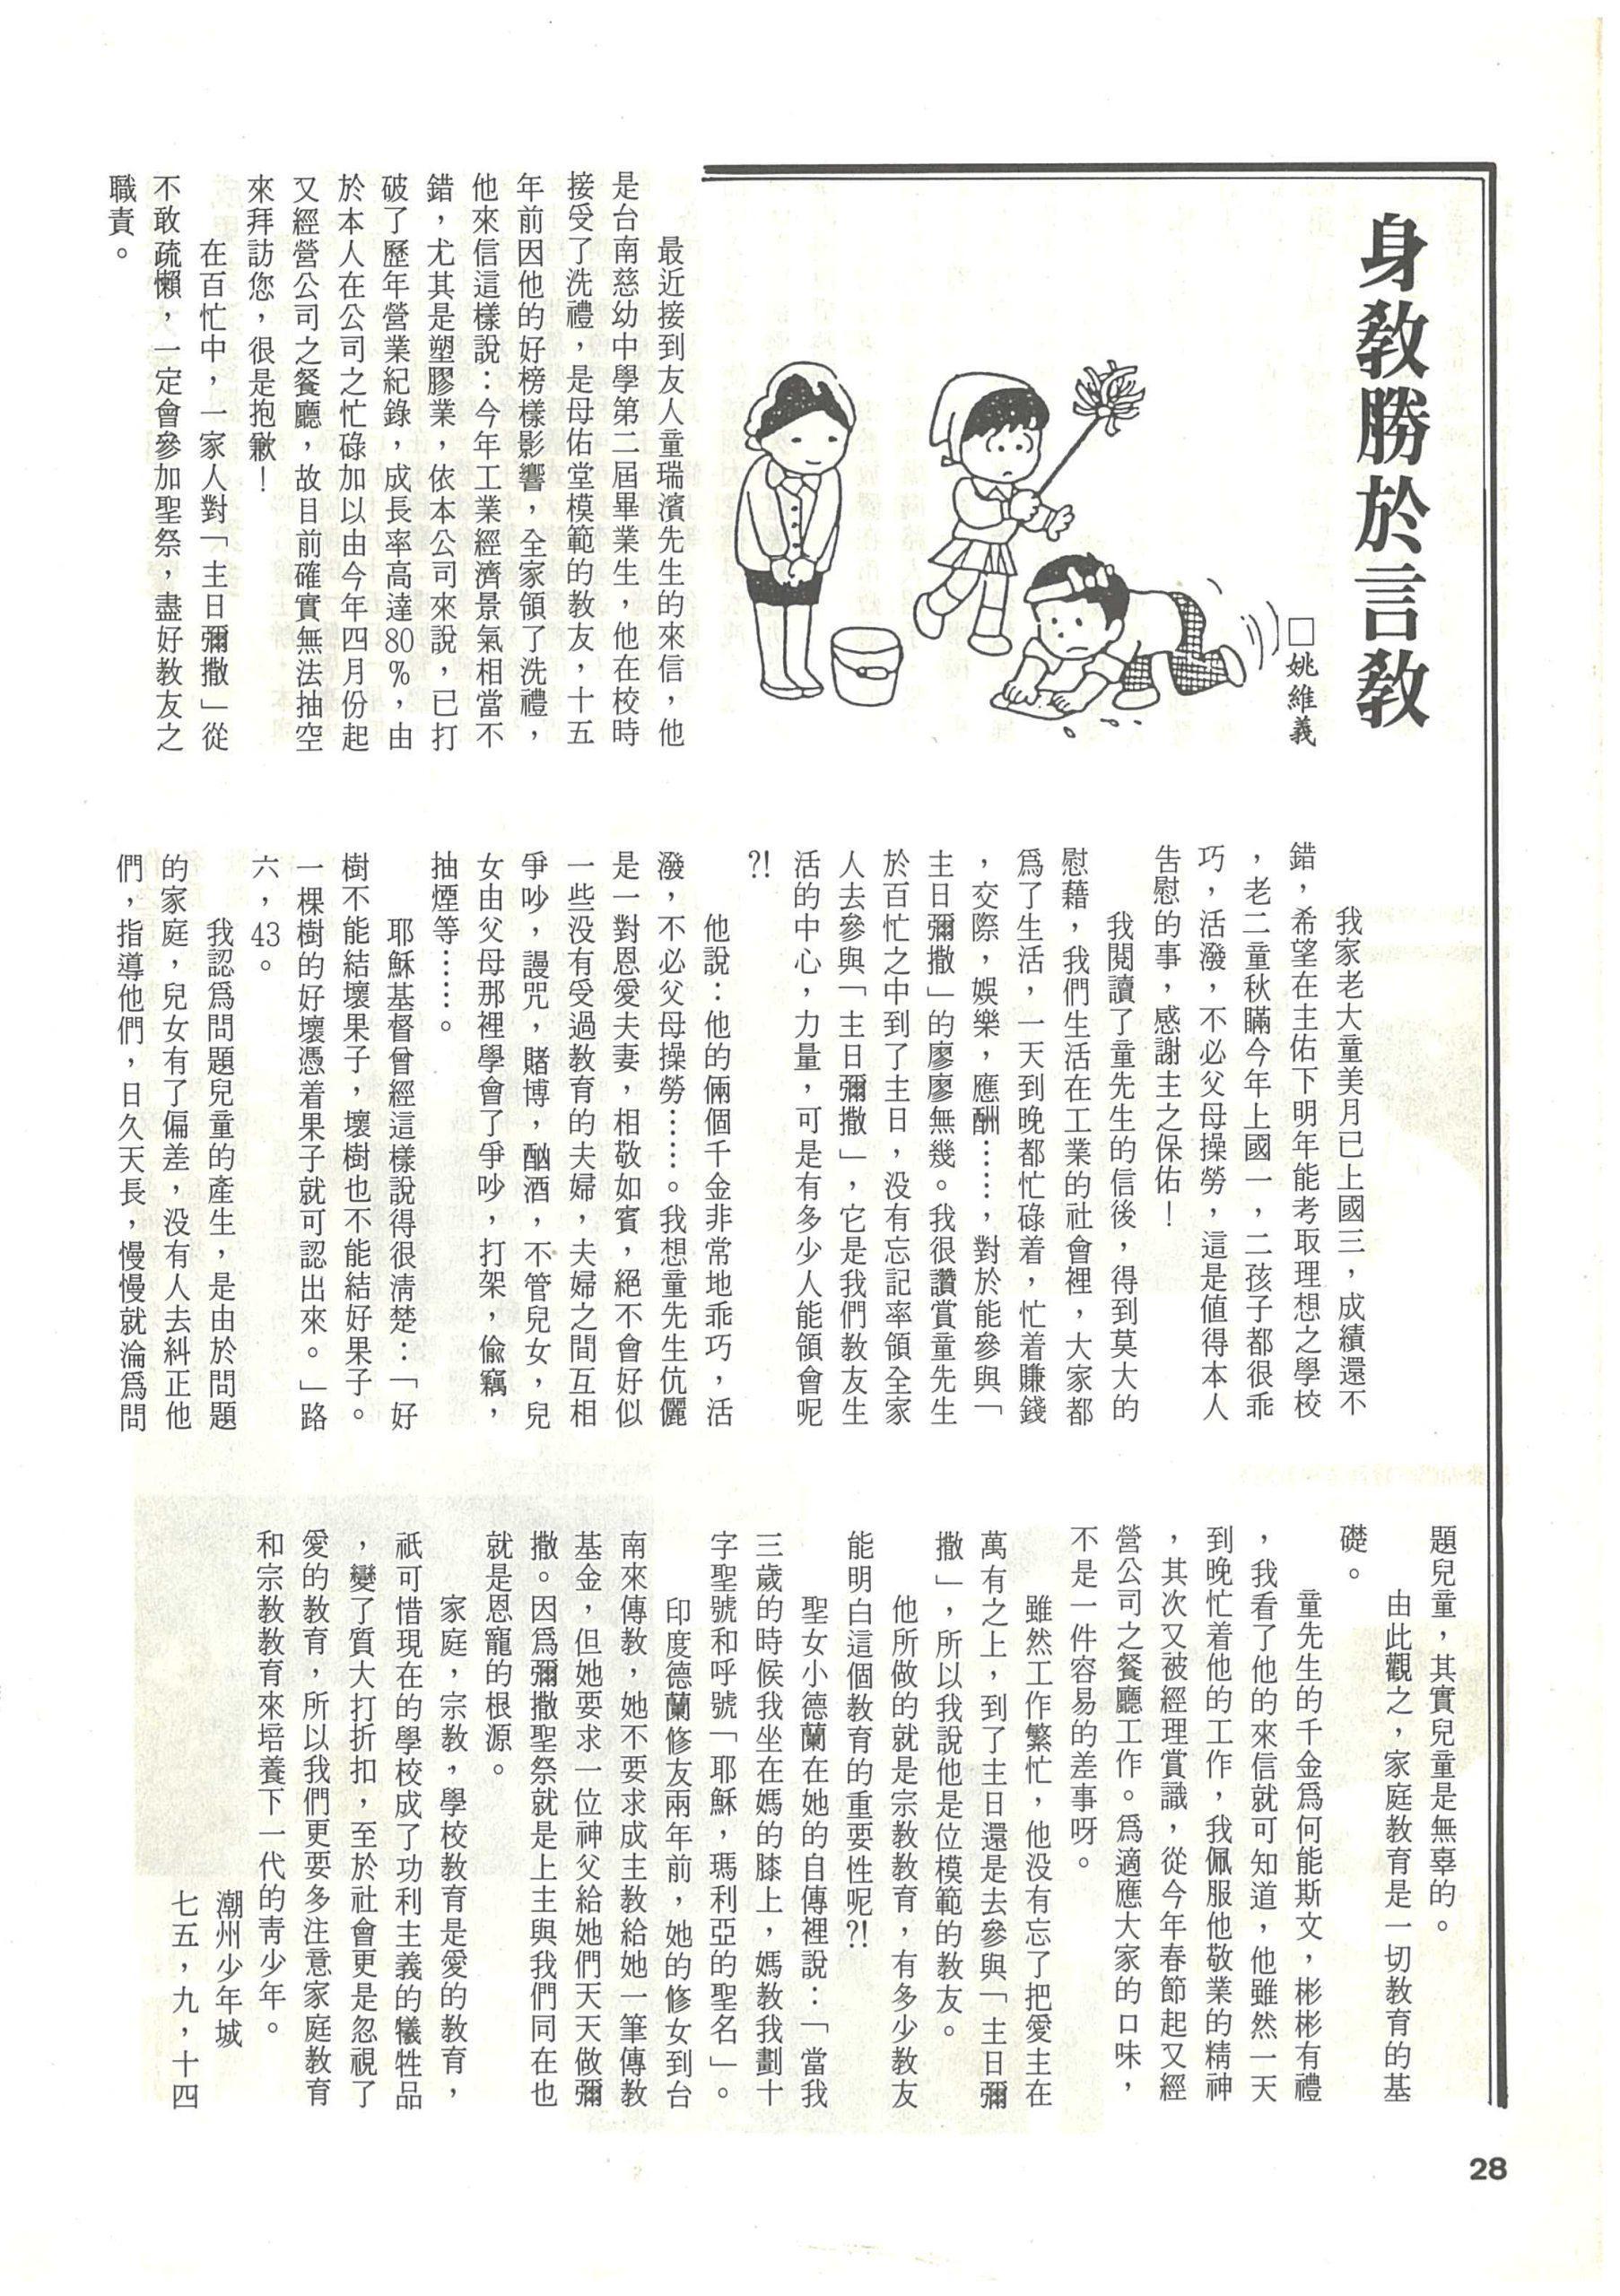 身教勝於言教
□姚維義
最近接到友人童瑞濱先生的來信，他
是台南慈幼中學第二屆畢業生，他在校時
接受了洗禮，是母佑堂模範的教友，十五
年前因他的好榜樣影響，全家領了洗禮，
他來信這樣說：今年工業經濟景氣相當不
錯，尤其是塑膠業，依本公司來說，已打
破了歷年營業紀錄，成長率高達80%，由
於本人在公司之忙碌加以由今年四月份起
又經營公司之餐廳，故目前確實無法抽空
來拜訪您，很是抱歉！
在百忙中，一家人對「主日彌撒」從
不敢疏懶，一定會參加聖祭，盡好教友之
職責。
我家老大童美月已上國三，成績還不
錯，希望在主佑下明年能考取理想之學校
，老二童秋瞞今年上國一，二孩子都很乖
巧，活潑，不必父母操勞，這是值得本人
告慰的事，感謝主之保佑！
我閱讀了童先生的信後，得到莫大的
慰藉，我們生活在工業的社會裡，大家都
爲了生活，一天到晚都忙碌着，忙着賺錢
，交際，娛樂，應酬……，對於能參與「
主日彌撒」的廖廖無幾。我很讚賞童先生
於百忙之中到了主日，没有忘記率領全家
人去參與「主日彌撒」，它是我們教友生
活的中心，力量，可是有多少人能領會呢
?!
他說：他的倆個千金非常地乖巧，活
潑，不必父母操勞……。我想童先生伉儷
是一對恩愛夫妻，相敬如賓，絕不會好似
一些没有受過教育的夫婦，夫婦之間互相
爭吵，謾咒，賭博，酗酒，不管兒女，兒
女由父母那裡學會了爭吵，打架，偸竊，
抽煙等……。
耶穌基督曾經這樣說得很淸楚：「好
樹不能結壞果子，壞樹也不能結好果子。
一棵樹的好壞憑着果子就可認出來。」路
六，43。
我認爲問題兒童的產生，是由於問題
的家庭，兒女有了偏差，没有人去糾正他
們，指導他們，日久天長，慢慢就淪爲問
題兒童，其實兒童是無辜的。
由此觀之，家庭教育是一切教育的基
礎。
童先生的千金爲何能斯文，彬彬有禮
，我看了他的來信就可知道，他雖然一天
到晚忙着他的工作，我佩服他敬業的精神
，其次又被經理賞識，從今年春節起又經
營公司之餐廳工作。爲適應大家的口味，
不是一件容易的差事呀。
雖然工作繁忙，他没有忘了把愛主在
萬有之上，到了主日還是去參與「主日彌
撒」，所以我說他是位模範的教友。
他所做的就是宗教教育，有多少教友
能明白這個教育的重要性呢?!
聖女小德蘭在她的自傳裡說：「當我
三歲的時候我坐在媽的膝上，媽教我劃十
字聖號和呼號「耶穌，瑪利亞的聖名」。
印度德蘭修友兩年前，她的修女到台
南來傳教，她不要求成主教給她一筆傳教
基金，但她要求一位神父給她們天天做彌
撒。因爲彌撒聖祭就是上主與我們同在也
就是恩寵的根源。
家庭，宗教，學校教育是愛的教育，
祇可惜現在的學校成了功利主義的犧牲品
，變了質大打折扣，至於社會更是忽視了
愛的教育，所以我們更要多注意家庭教育
和宗教教育來培養下一代的靑少年。
潮州少年城
七五，九，十四
28